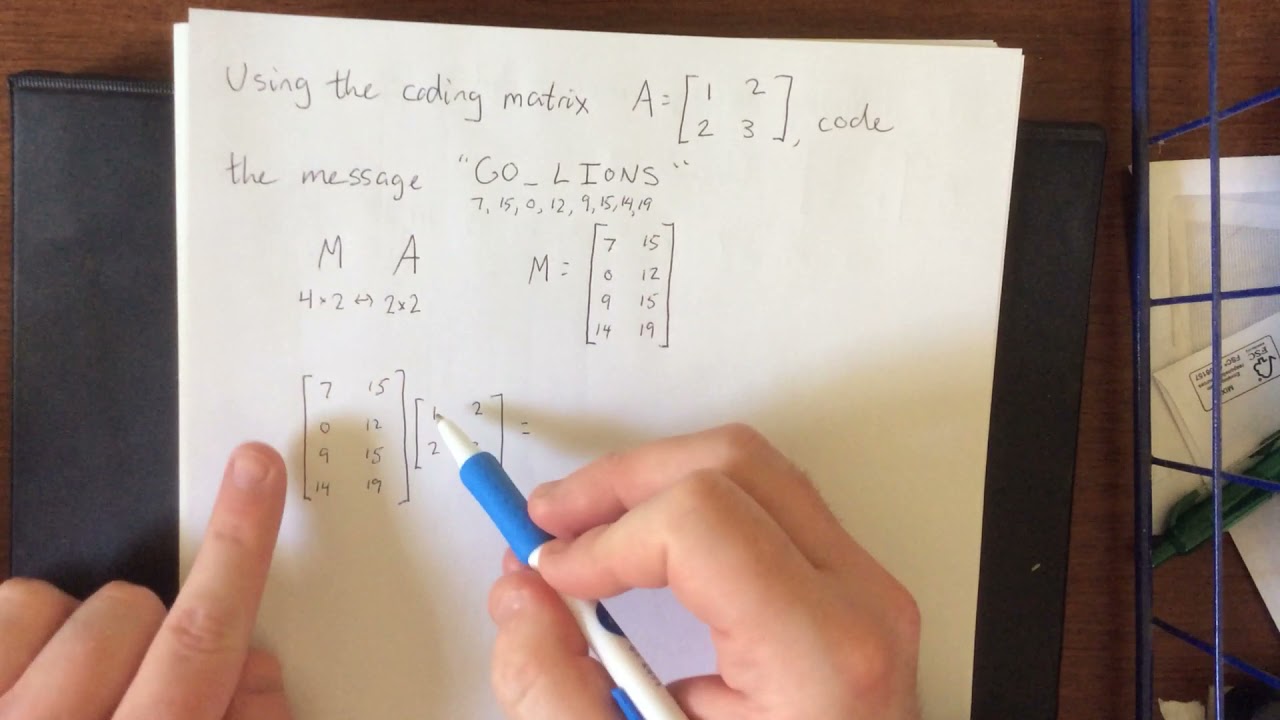 Using the coding matrix A = [ 1 2 ], code
[ 2 3 ]
the message "GO_LIONS"
7, 15, 0, 12, 9, 15, 14, 19
M A
4×2 ↔ 2×2
M = [ 7 15 ]
[ 0 12 ]
[ 9 15 ]
[ 14 19 ]
[ 7 15 ] [ 1 2 ] =
[ 0 12 ] [ 2 ]
[ 9 15 ]
[ 14 19 ]
MIX
FSC